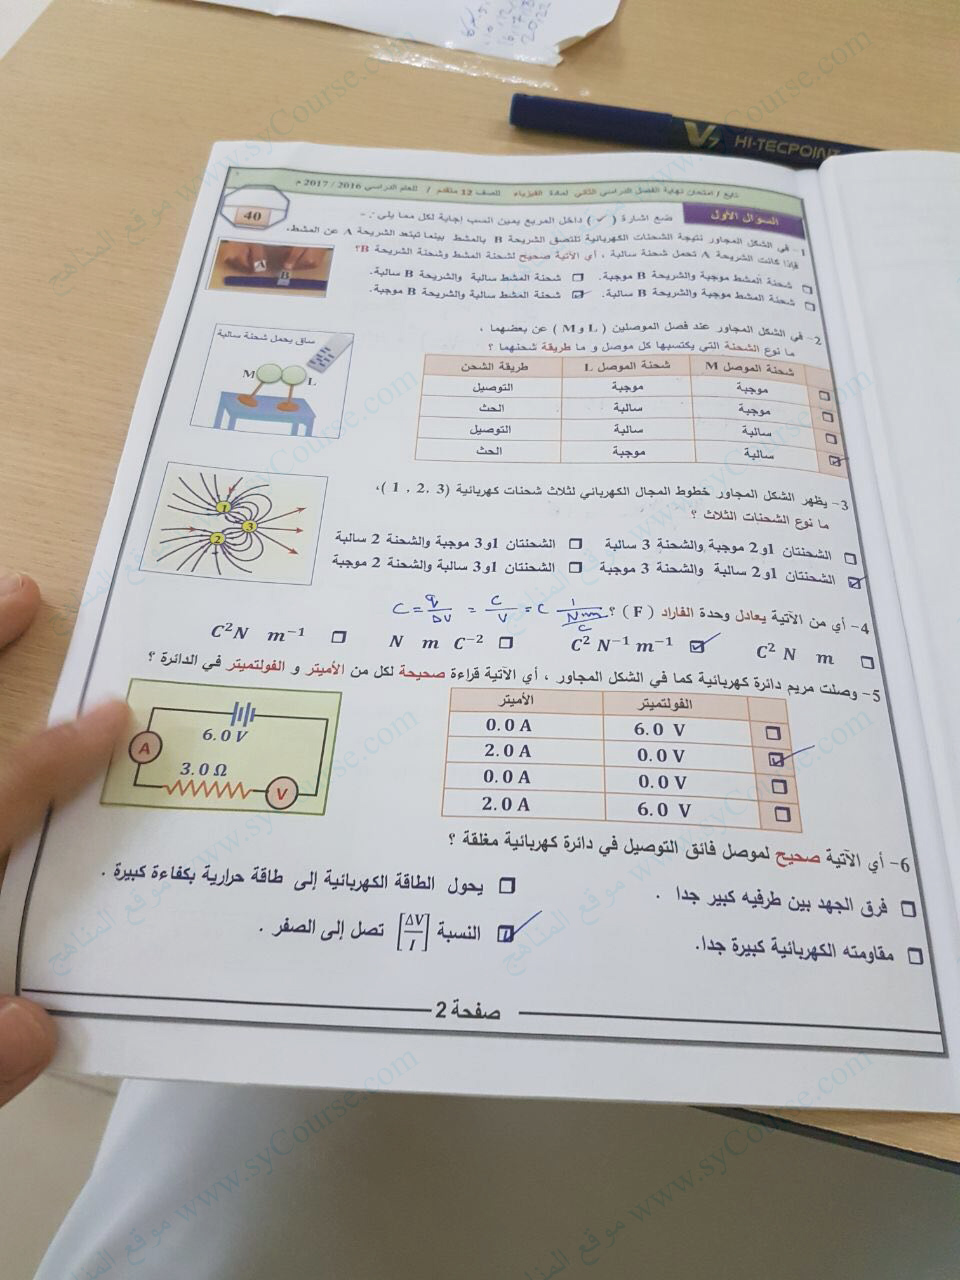 V7 HI-TECPOINT
تابع / امتحان نهاية الفصل الدراسي الثاني لمادة الفيزياء للصف 12 متقدم / للعام الدراسي 2016 / 2017 م
40
السؤال الأول
ضع اشارة ( ✓ ) داخل المربع يمين انسب إجابة لكل مما يلي :-
1- في الشكل المجاور نتيجة الشحنات الكهربائية تلتصق الشريحة B بالمشط بينما تبتعد الشريحة A عن المشط،
فإذا كانت الشريحة A تحمل شحنة سالبة ، أي الآتية صحيح لشحنة المشط وشحنة الشريحة B؟
شحنة المشط موجبة والشريحة B موجبة.
شحنة المشط سالبة والشريحة B سالبة.
شحنة المشط موجبة والشريحة B سالبة.
شحنة المشط سالبة والشريحة B موجبة.
A
B
2- في الشكل المجاور عند فصل الموصلين ( L و M ) عن بعضهما ،
ما نوع الشحنة التي يكتسبها كل موصل و ما طريقة شحنهما ؟
شحنة الموصل M شحنة الموصل L طريقة الشحن
موجبة موجبة التوصيل
موجبة سالبة الحث
سالبة سالبة التوصيل
سالبة موجبة الحث
ساق يحمل شحنة سالبة
M L
3- يظهر الشكل المجاور خطوط المجال الكهربائي لثلاث شحنات كهربائية (3 ، 2 ، 1 )،
ما نوع الشحنات الثلاث ؟
الشحنتان 1و2 موجبة والشحنة 3 سالبة
الشحنتان 1و3 موجبة والشحنة 2 سالبة
الشحنتان 1و2 سالبة والشحنة 3 موجبة
الشحنتان 1و3 سالبة والشحنة 2 موجبة
1
3
2
4- أي من الآتية يعادل وحدة الفاراد ( F ) ؟
C = q/ΔV = C/V = C 1/(Nm/C)
C² N m
C² N⁻¹ m⁻¹
N m C⁻²
C²N m⁻¹
5- وصلت مريم دائرة كهربائية كما في الشكل المجاور ، أي الآتية قراءة صحيحة لكل من الأميتر و الفولتميتر في الدائرة ؟
الفولتميتر الأميتر
6.0 V 0.0 A
0.0 V 2.0 A
0.0 V 0.0 A
6.0 V 2.0 A
6.0 V
A
3.0 Ω
V
6- أي الآتية صحيح لموصل فائق التوصيل في دائرة كهربائية مغلقة ؟
فرق الجهد بين طرفيه كبير جدا .
يحول الطاقة الكهربائية إلى طاقة حرارية بكفاءة كبيرة .
مقاومته الكهربائية كبيرة جدا.
النسبة [ΔV/I] تصل إلى الصفر .
صفحة 2
موقع المناهج www.syCourse.com